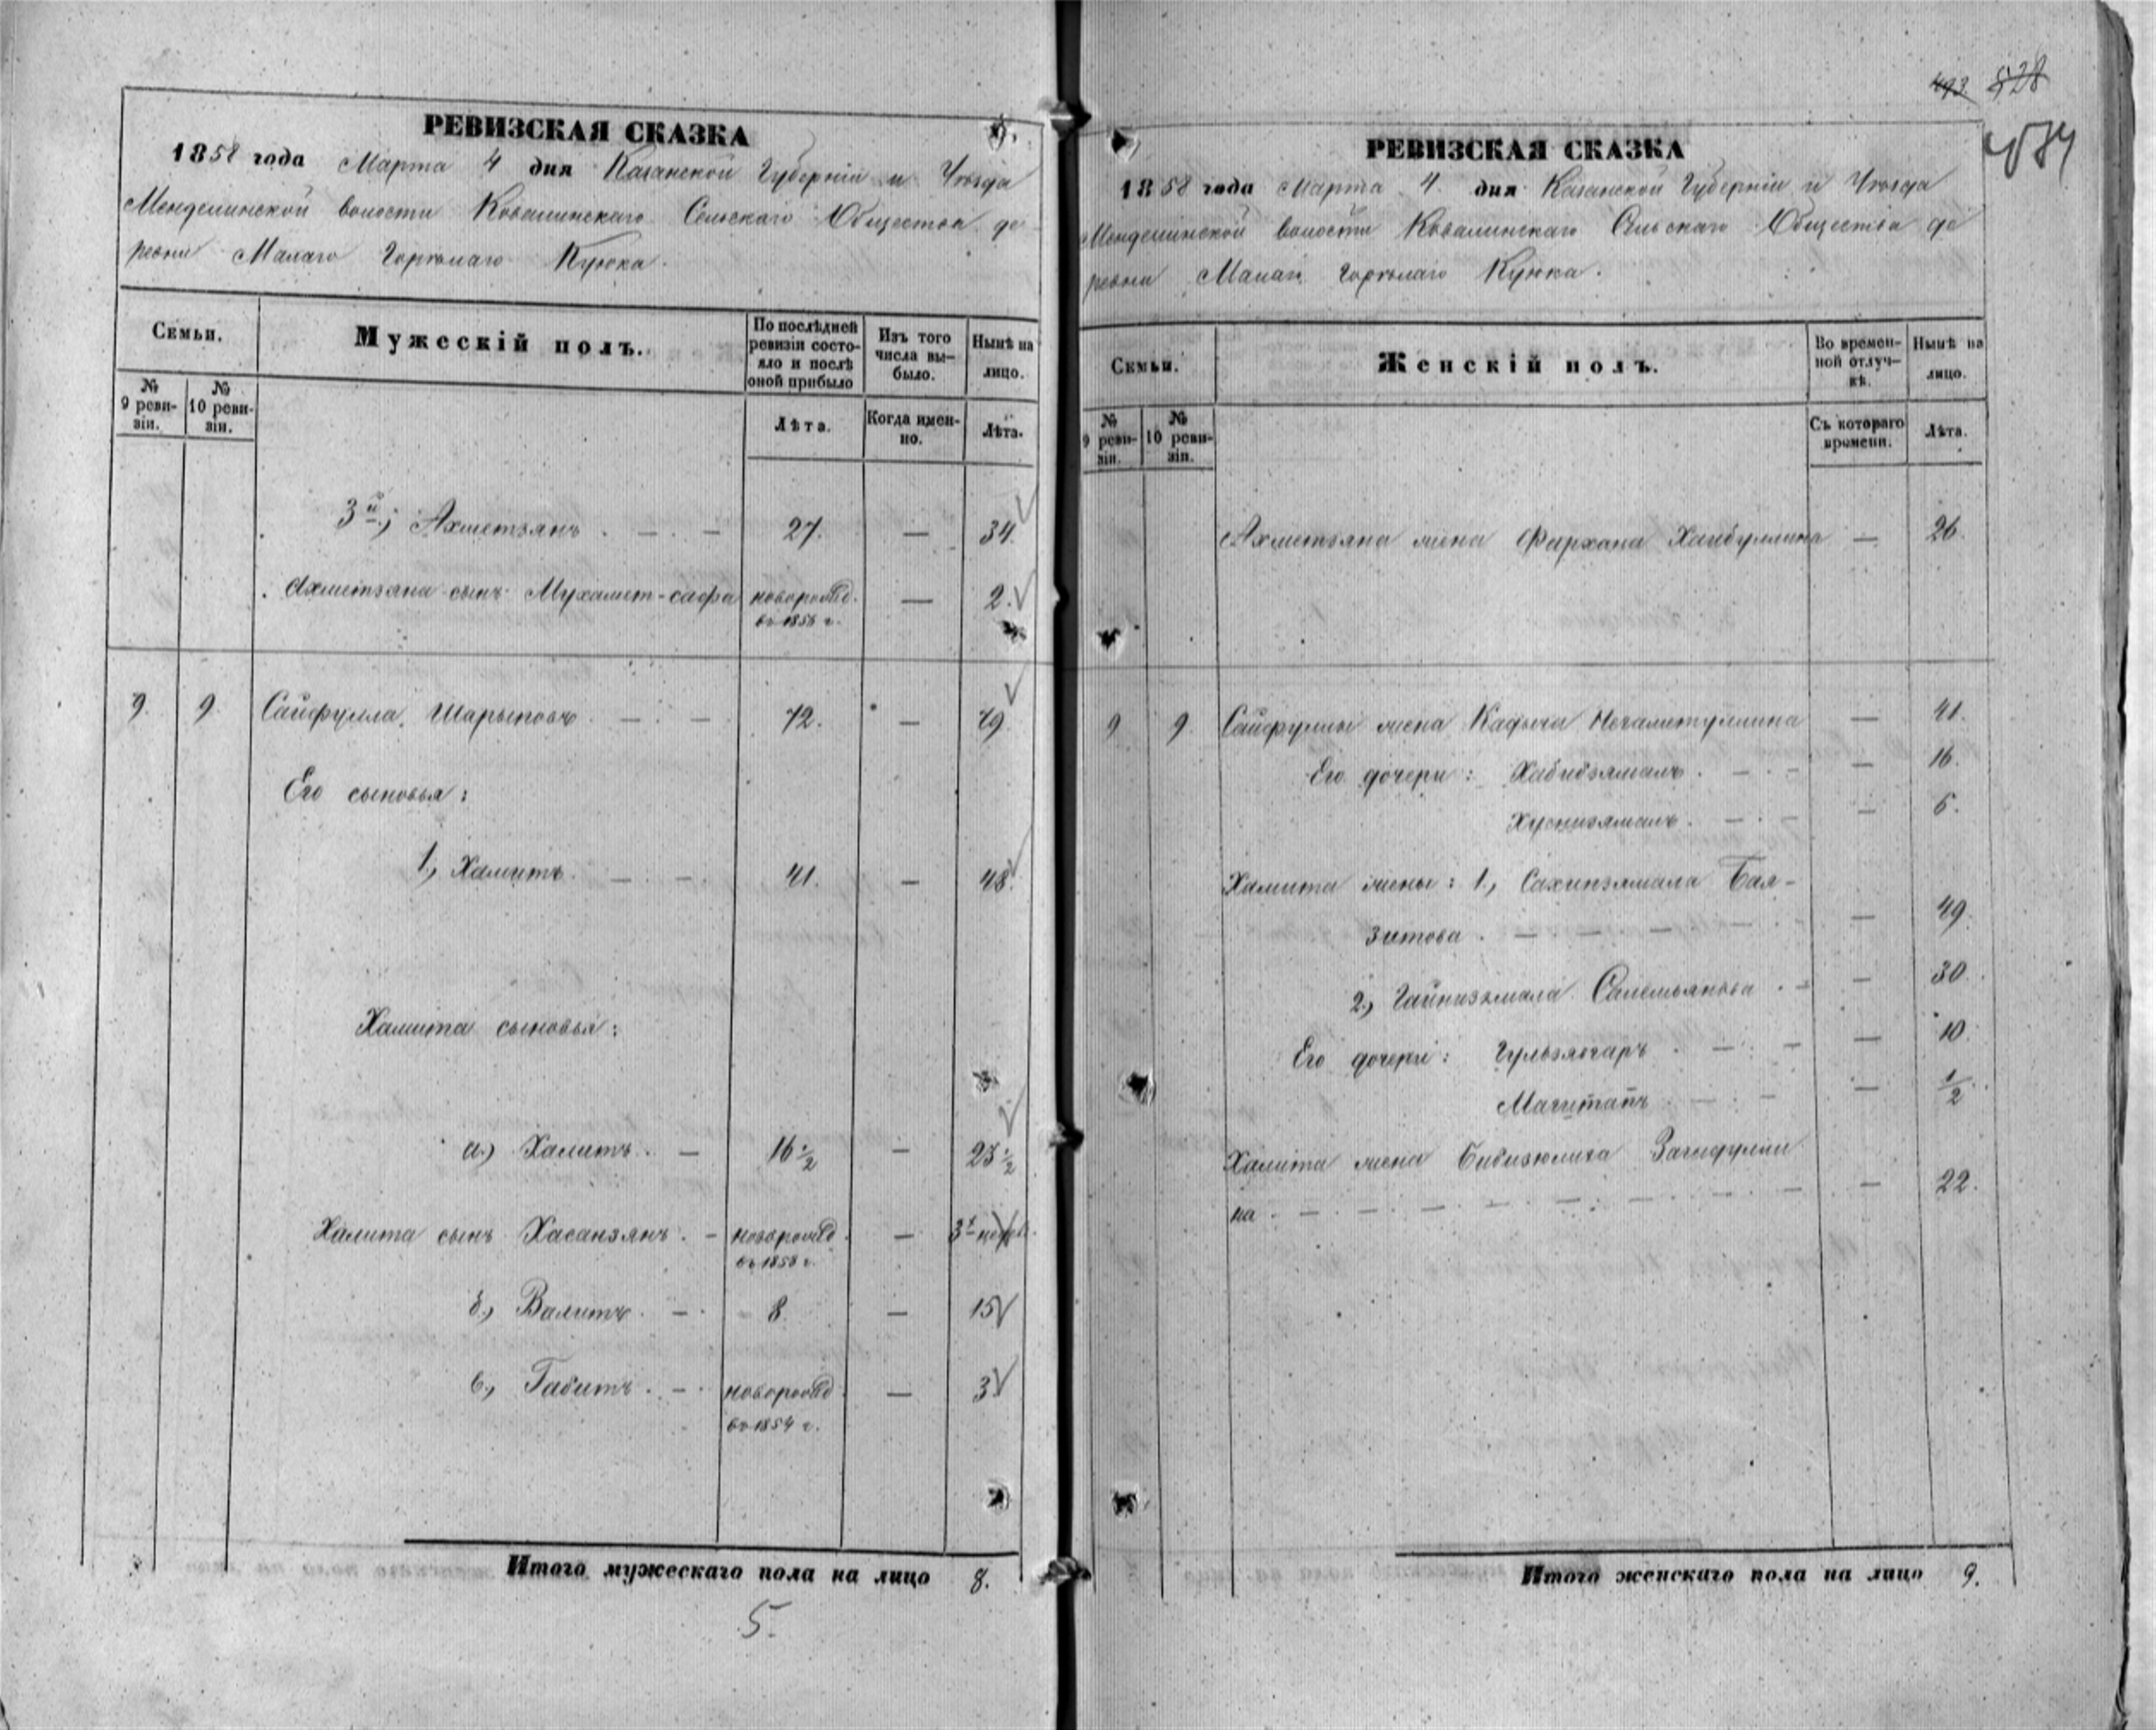 РЕВИЗСКАЯ СКАЗКА
1858 года Марта 4 дня Казанской Губерніи и Уѣзда
Менделинской волости Ковалинскаго Сельскаго Общества де
ревни Малаго Горталаго Куюка.
Семьи.
Мужескій полъ.
По послѣдней ревизіи состояло и послѣ оной прибыло
Изъ того числа выбыло.
Нынѣ на лицо.
№ 9 ревизіи.
№ 10 ревизіи.
Лѣта.
Когда именно.
Лѣта.
3й, Ахметзянъ. — — 27. — 34.
Ахметзяна сынъ Мухамет-сафа новорожд. — 2.
въ 1856 г.
9. 9. Сайфулла Шарыповъ. — — 72. — 79
Его сыновья:
1, Хамитъ. — — 41. — 48.
Хамита сыновья:
а) Халитъ. — 16 1/2 — 23 1/2
Халита сынъ Хасанзянъ. — новорожд. — 3х недѣл.
въ 1858 г.
б, Валитъ. — 8. — 15
в, Габитъ. — новорожд. — 3
въ 1854 г.
Итого мужескаго пола на лицо 8.
5.
493 528
РЕВИЗСКАЯ СКАЗКА
1858 года Марта 4 дня Казанской Губерніи и Уѣзда
Менделинской волости Ковалинскаго Сельскаго Общества де
ревни Малаго Горталаго Куюка.
Семьи.
Женскій полъ.
Во временной отлучкѣ.
Нынѣ на лицо.
№ 9 ревизіи.
№ 10 ревизіи.
Съ котораго времени.
Лѣта.
Ахметзяна жена Фархана Хайбуллина — 26.
9 9. Сайфуллы жена Кадыча Негаметуллина — 41.
Его дочери: Хабибзямалъ. — — 16.
Хуснизямалъ. — — 6.
Хамита жены: 1, Сахипзямала Бая-
зитова. — — — — 49.
2, Гайнизямала Салемьянова. — — 30.
Его дочери: Гульзягаръ. — — 10.
Магитапъ. — — 1/2
Халита жена Бибизюлиха Загидулли
на. — — — — 22.
Итого женскаго пола на лицо 9.